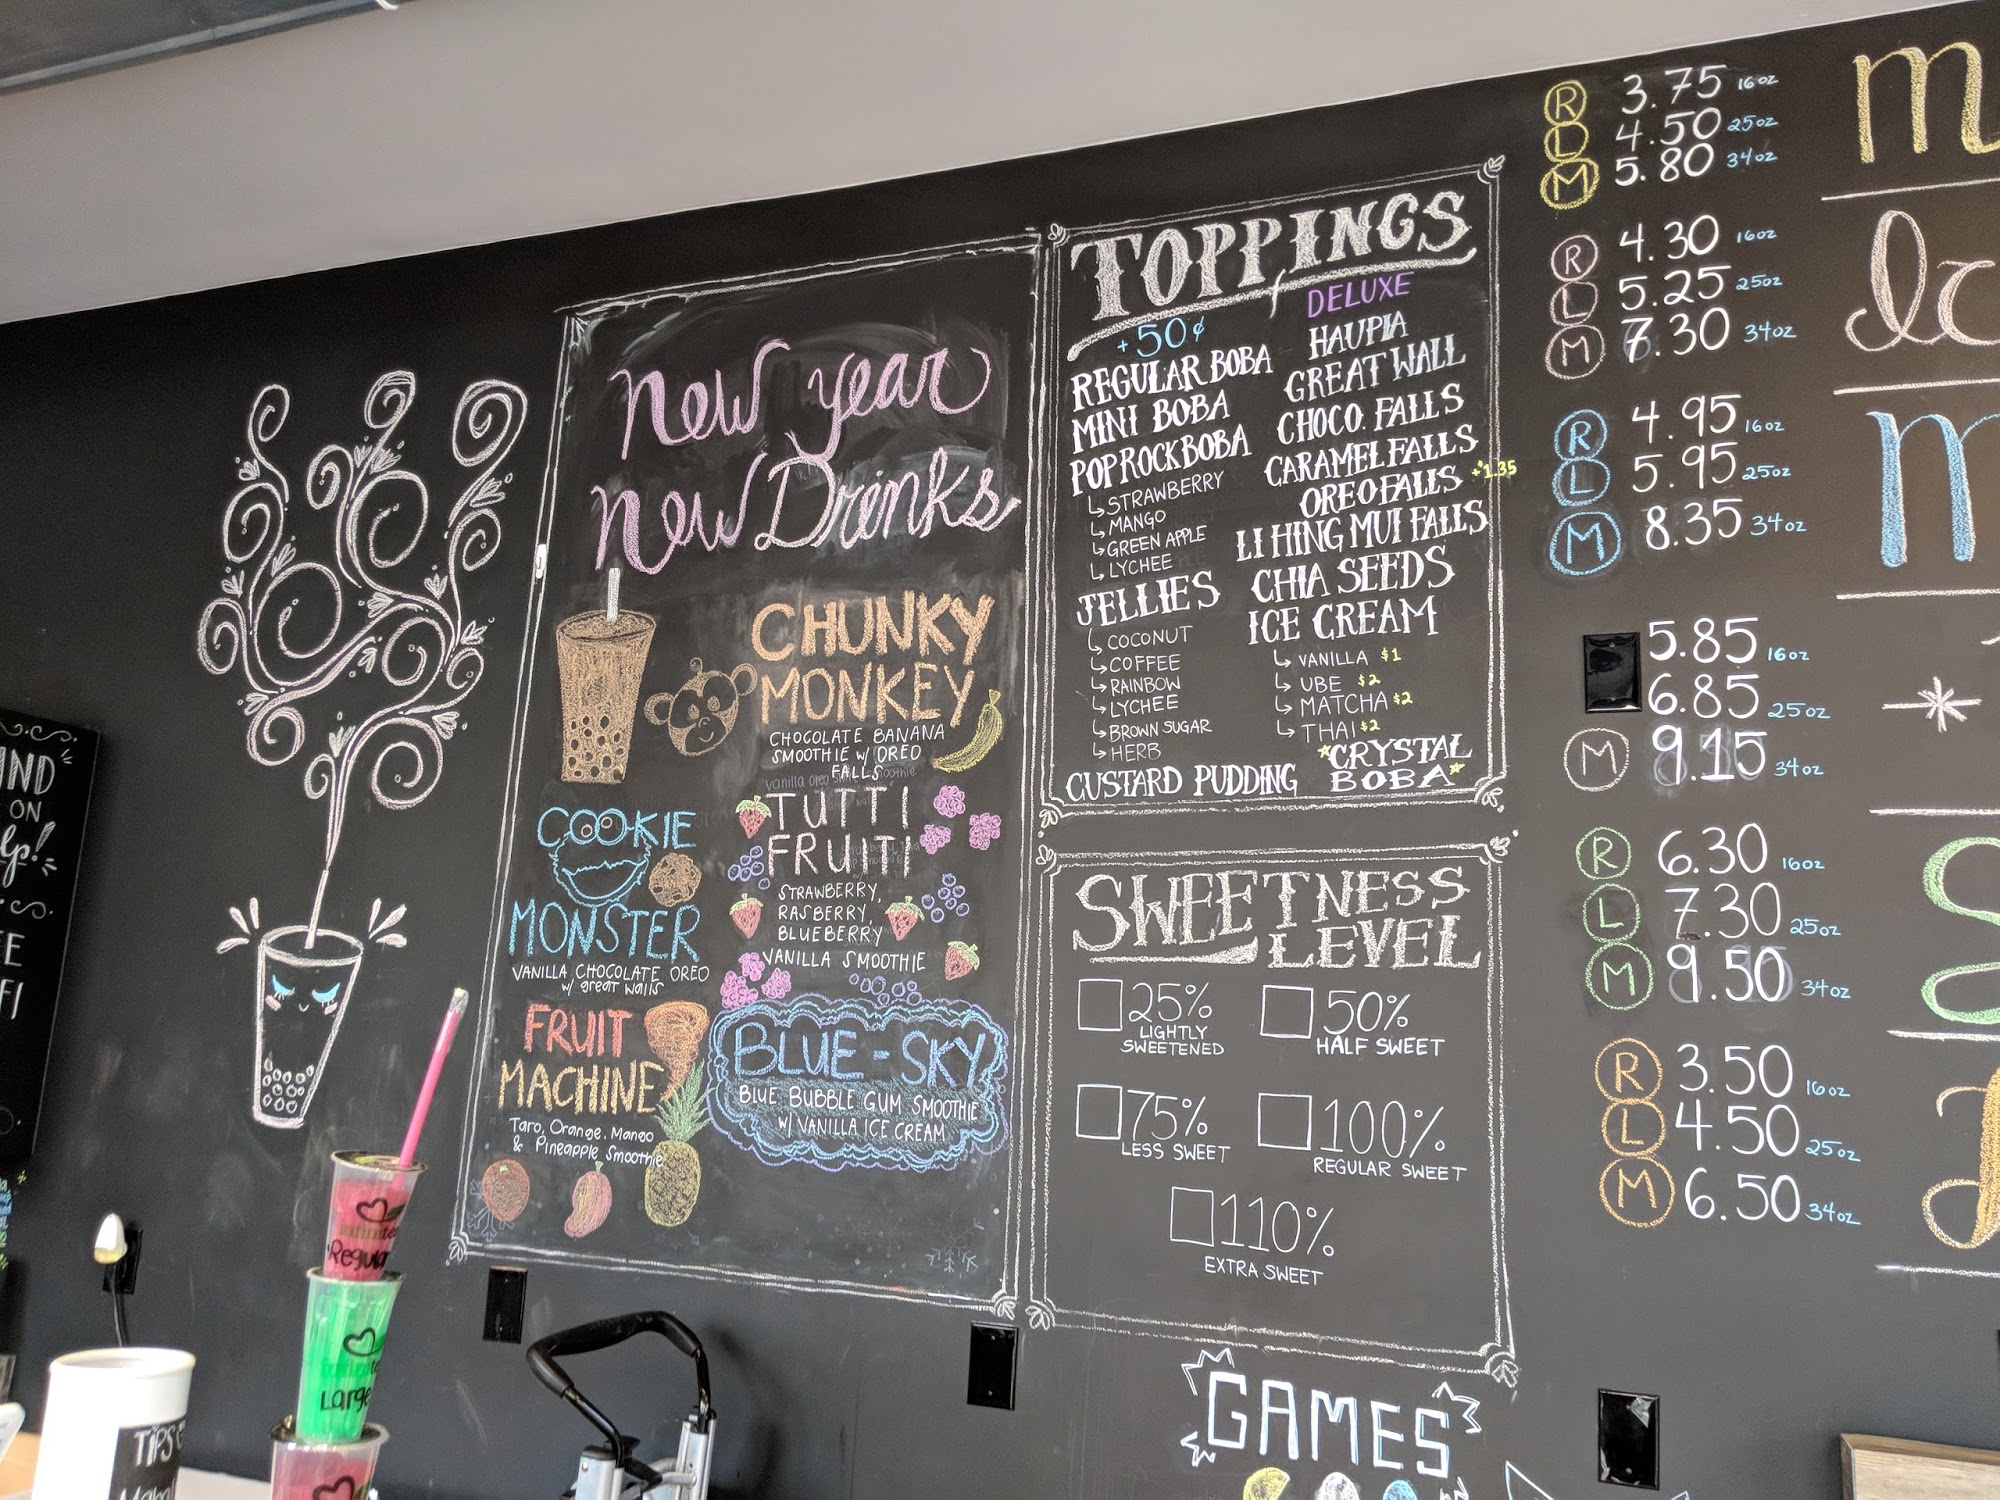 new year
new Drinks
CHUNKY
MONKEY
CHOCOLATE BANANA
SMOOTHIE W/ OREO
FALLS
COOKIE
MONSTER
VANILLA CHOCOLATE OREO
w/ great walls
TUTTI
FRUITI
STRAWBERRY,
RASBERRY,
BLUEBERRY
VANILLA SMOOTHIE
FRUIT
MACHINE
Taro, Orange, Mango
& Pineapple Smoothie
BLUE-SKY
BLUE BUBBLE GUM SMOOTHIE
W/ VANILLA ICE CREAM
TOPPINGS
+50¢
REGULAR BOBA
MINI BOBA
POP ROCK BOBA
↳ STRAWBERRY
↳ MANGO
↳ GREEN APPLE
↳ LYCHEE
JELLIES
↳ COCONUT
↳ COFFEE
↳ RAINBOW
↳ LYCHEE
↳ BROWN SUGAR
↳ HERB
CUSTARD PUDDING
DELUXE
HAUPIA
GREAT WALL
CHOCO. FALLS
CARAMEL FALLS
OREO FALLS +$1.35
LI HING MUI FALLS
CHIA SEEDS
ICE CREAM
↳ VANILLA $1
↳ UBE $2
↳ MATCHA $2
↳ THAI $2
CRYSTAL
BOBA
SWEETNESS
LEVEL
25%
LIGHTLY
SWEETENED
50%
HALF SWEET
75%
LESS SWEET
100%
REGULAR SWEET
110%
EXTRA SWEET
GAMES
R 3.75 16oz
L 4.50 25oz
M 5.80 34oz
R 4.30 16oz
L 5.25 25oz
M 7.30 34oz
R 4.95 16oz
L 5.95 25oz
M 8.35 34oz
5.85 16oz
6.85 25oz
M 9.15 34oz
R 6.30 16oz
L 7.30 25oz
M 9.50 34oz
R 3.50 16oz
L 4.50 25oz
M 6.50 34oz
ON
Regular
Large
TIPS